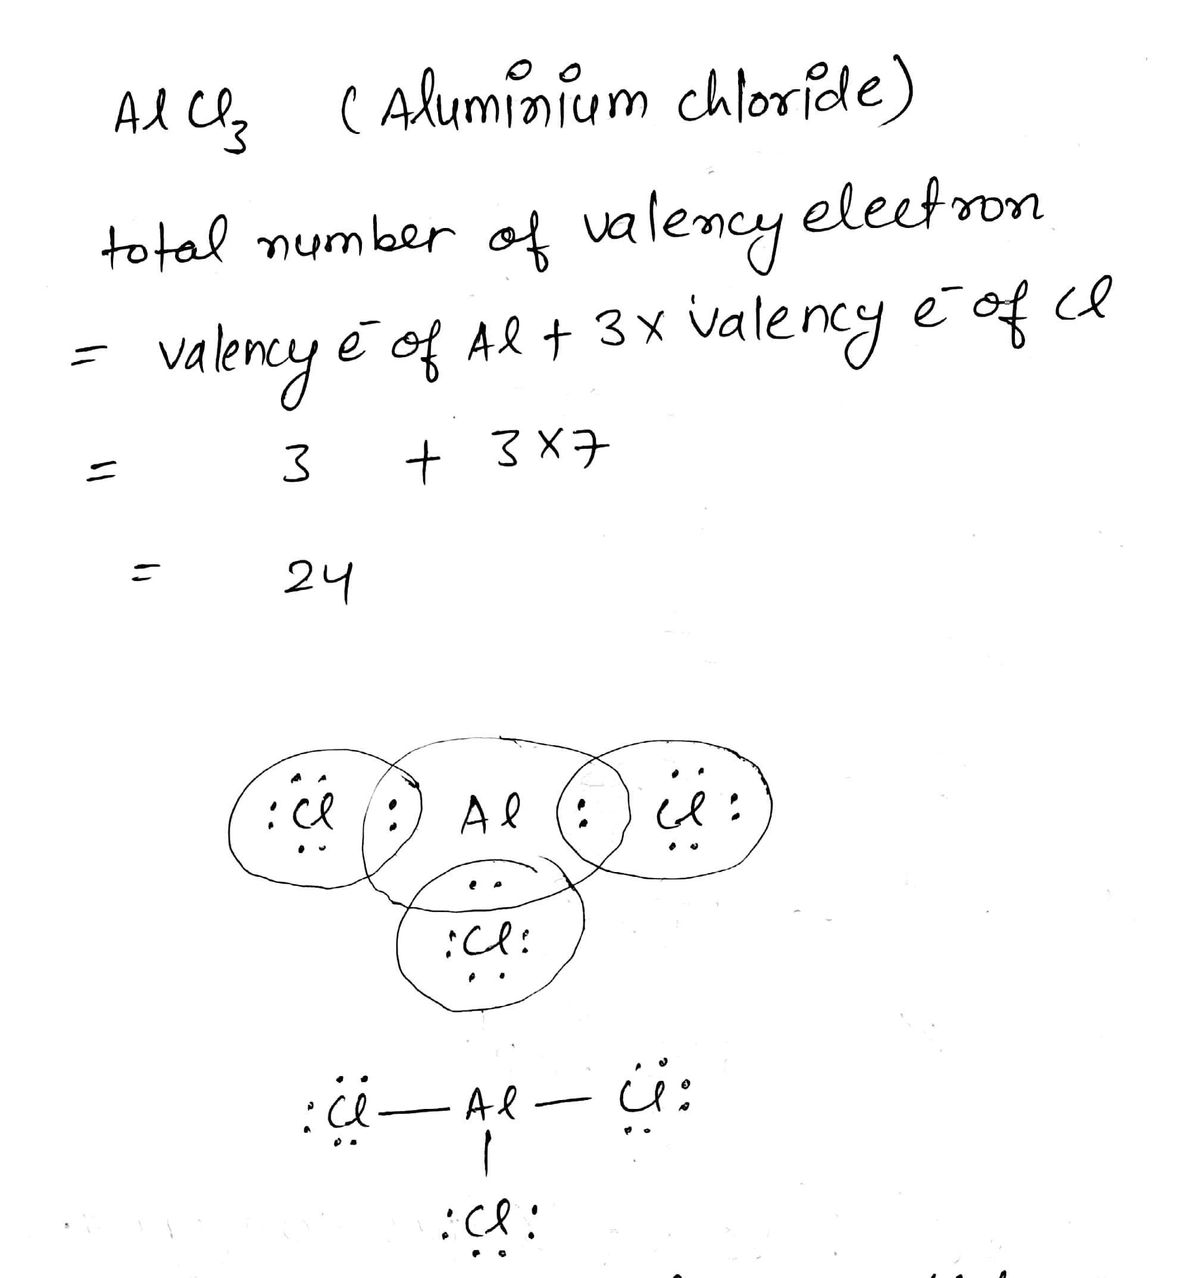 AlCl₃ (Aluminium chloride)
total number of valency electron
= valency e⁻ of Al + 3 x valency e⁻ of Cl
= 3 + 3 x 7
= 24
:Cl : Al : Cl :
:Cl:
:Cl — Al — Cl:
|
:Cl: